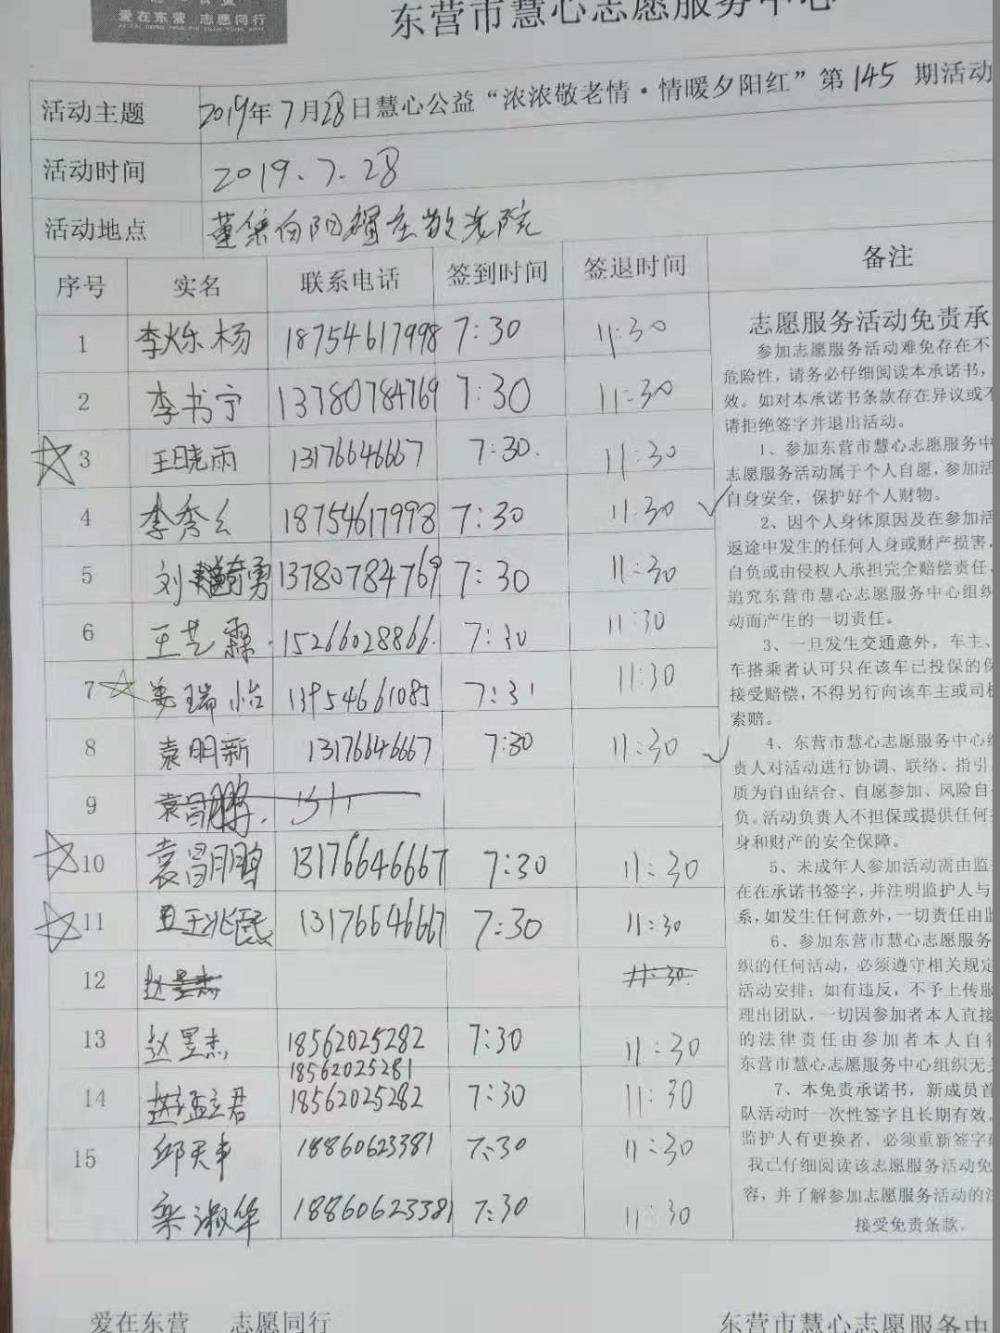 爱在东营 志愿同行
东营市慧心志愿服务中心
活动主题 2019年7月28日慧心公益“浓浓敬老情·情暖夕阳红”第145期活动
活动时间 2019.7.28
活动地点 董集向阳 敬老院
序号 实名 联系电话 签到时间 签退时间 备注
1 李烁杨 18754617998 7:30 11:30
2 李书宁 13780784769 7:30 11:30
3 王晓雨 13176646667 7:30. 11:30
4 李秀 18754617998 7:30 11:30
5 刘 勇 13780784769 7:30 11:30
6 王艺霖. 15266028866. 7:30 11:30
7 姜瑞怡 13954661085 7:31 11:30
8 袁明新 13176646667 7:30 11:30
9 袁昌鹏. 131
10 袁昌鹏 13176646667 7:30 11:30
11 王兆熙 13176646667 7:30 11:30
12 赵昱杰 11:30
13 赵昱杰 18562025282 7:30 11:30
18562025281
14 孟立君 18562025282 7:30 11:30
15 邱天事 18860623381 7:30 11:30
栾淑华 18860623381 7:30 11:30
志愿服务活动免责承
参加志愿服务活动难免存在不
危险性，请务必仔细阅读本承诺书，
效。如对本承诺书条款存在异议或不
请拒绝签字并退出活动。
1、参加东营市慧心志愿服务中
志愿服务活动属于个人自愿，参加活
自身安全，保护好个人财物。
2、因个人身体原因及在参加活
返途中发生的任何人身或财产损害，
自负或由侵权人承担完全赔偿责任，
追究东营市慧心志愿服务中心组织
动而产生的一切责任。
3、一旦发生交通意外，车主、
车搭乘者认可只在该车已投保的保
接受赔偿，不得另行向该车主或司机
索赔。
4、东营市慧心志愿服务中心组
责人对活动进行协调、联络、指引
质为自由结合、自愿参加、风险自
负。活动负责人不担保或提供任何
身和财产的安全保障。
5、未成年人参加活动需由监
在在承诺书签字，并注明监护人与
系，如发生任何意外，一切责任由监
6、参加东营市慧心志愿服务
织的任何活动，必须遵守相关规定
活动安排；如有违反，不予上传服
理出团队，一切因参加者本人直接
的法律责任由参加者本人自行
东营市慧心志愿服务中心组织无关
7、本免责承诺书，新成员首
队活动时一次性签字且长期有效。
监护人有更换者，必须重新签字确
我已仔细阅读该志愿服务活动免
容，并了解参加志愿服务活动的注
接受免责条款。
爱在东营 志愿同行 东营市慧心志愿服务中